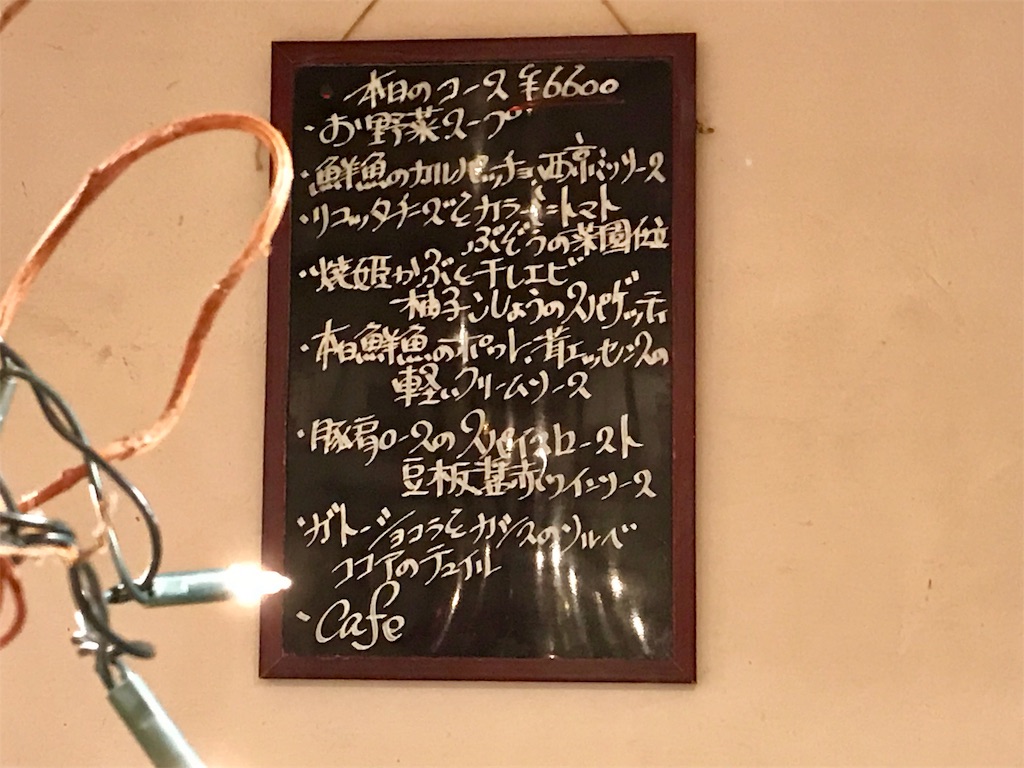 本日のコース ¥6600
・お野菜スープ
・鮮魚のカルパッチョ、西京ミソソース
・リコッタチーズとカラードトマト
ぶどうの菜園仕立
・焼姫かぶと干しエビ
柚子こしょうのスパゲッティ
・本日鮮魚のポワレ、茸エッセンスの
軽いクリームソース
・豚肩ロースのスパイスロースト
豆板醤赤ワインソース
・ガトーショコラとカシスのソルベ
ココアのテュイル
・Cafe